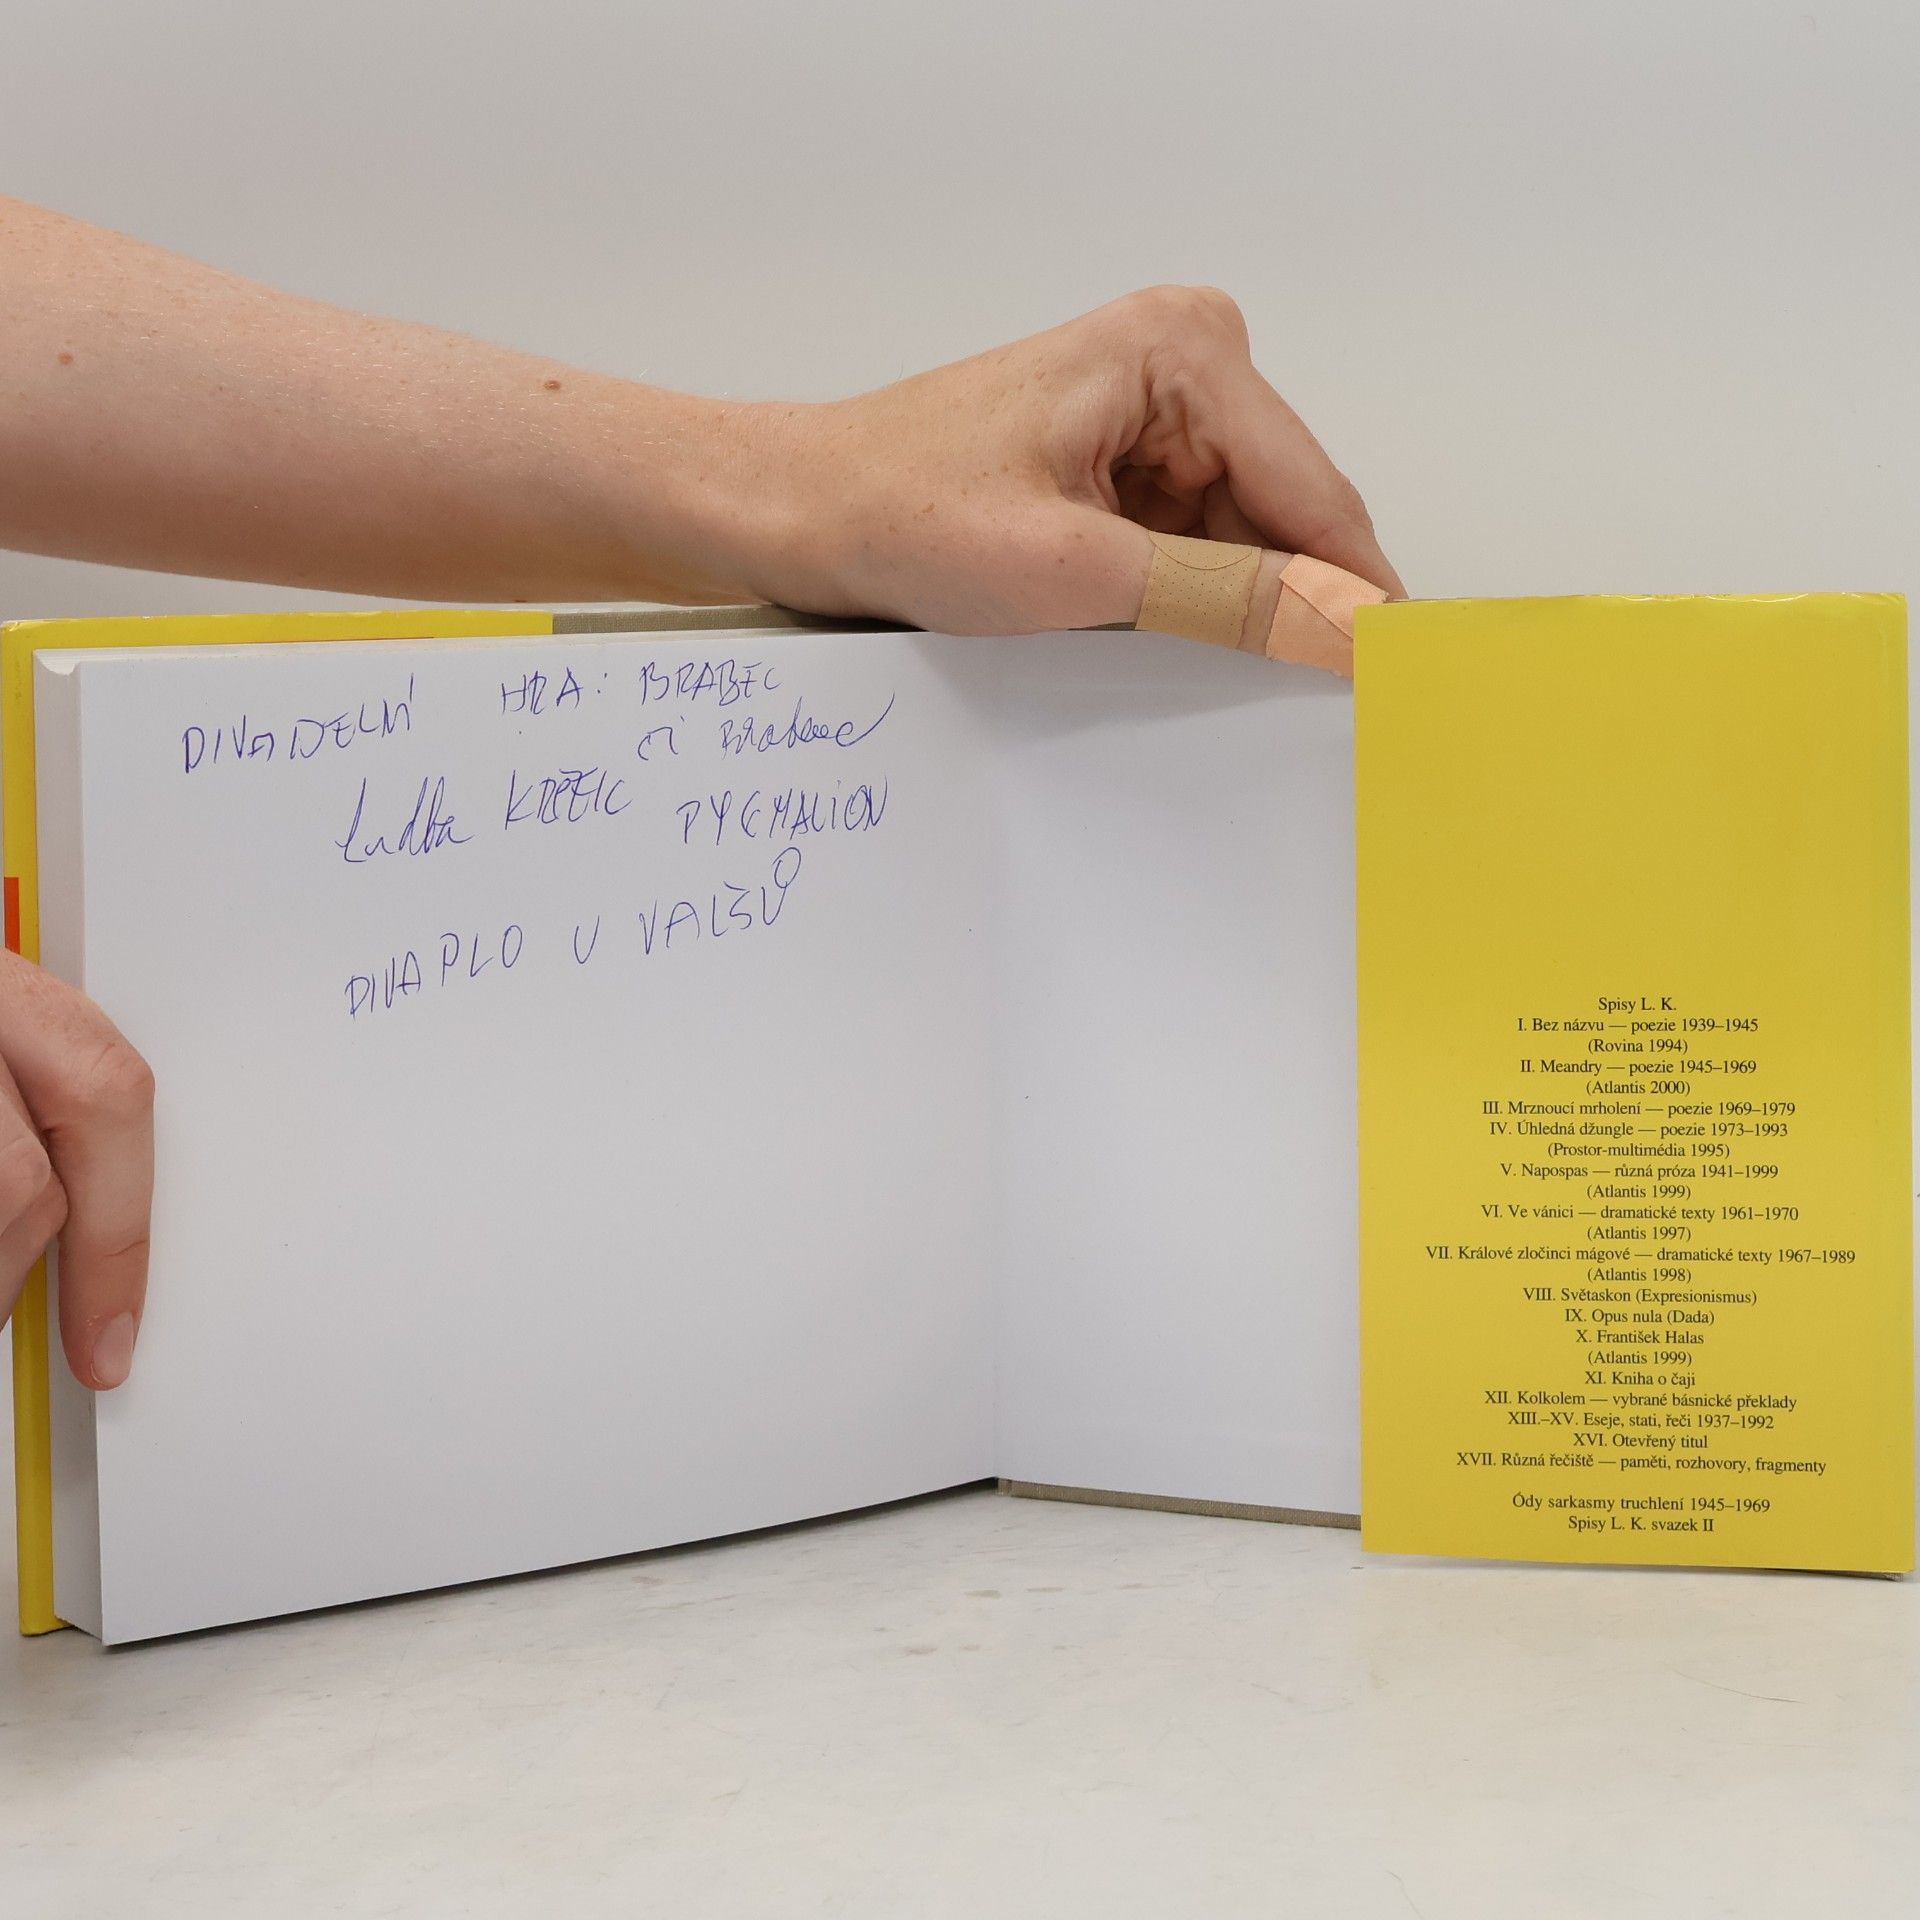 DIVADELNÍ HRA: BRABEC
či
PYGMALION
DIVADLO U VALŠŮ
Spisy L. K.
I. Bez názvu — poezie 1939–1945
(Rovina 1994)
II. Meandry — poezie 1945–1969
(Atlantis 2000)
III. Mrznoucí mrholení — poezie 1969–1979
IV. Úhledná džungle — poezie 1973–1993
(Prostor-multimédia 1995)
V. Napospas — různá próza 1941–1999
(Atlantis 1999)
VI. Ve vánici — dramatické texty 1961–1970
(Atlantis 1997)
VII. Králové zločinci mágové — dramatické texty 1967–1989
(Atlantis 1998)
VIII. Světaskon (Expresionismus)
IX. Opus nula (Dada)
X. František Halas
(Atlantis 1999)
XI. Kniha o čaji
XII. Kolkolem — vybrané básnické překlady
XIII.–XV. Eseje, stati, řeči 1937–1992
XVI. Otevřený titul
XVII. Různá řečiště — paměti, rozhovory, fragmenty
Ódy sarkasmy truchlení 1945–1969
Spisy L. K. svazek II